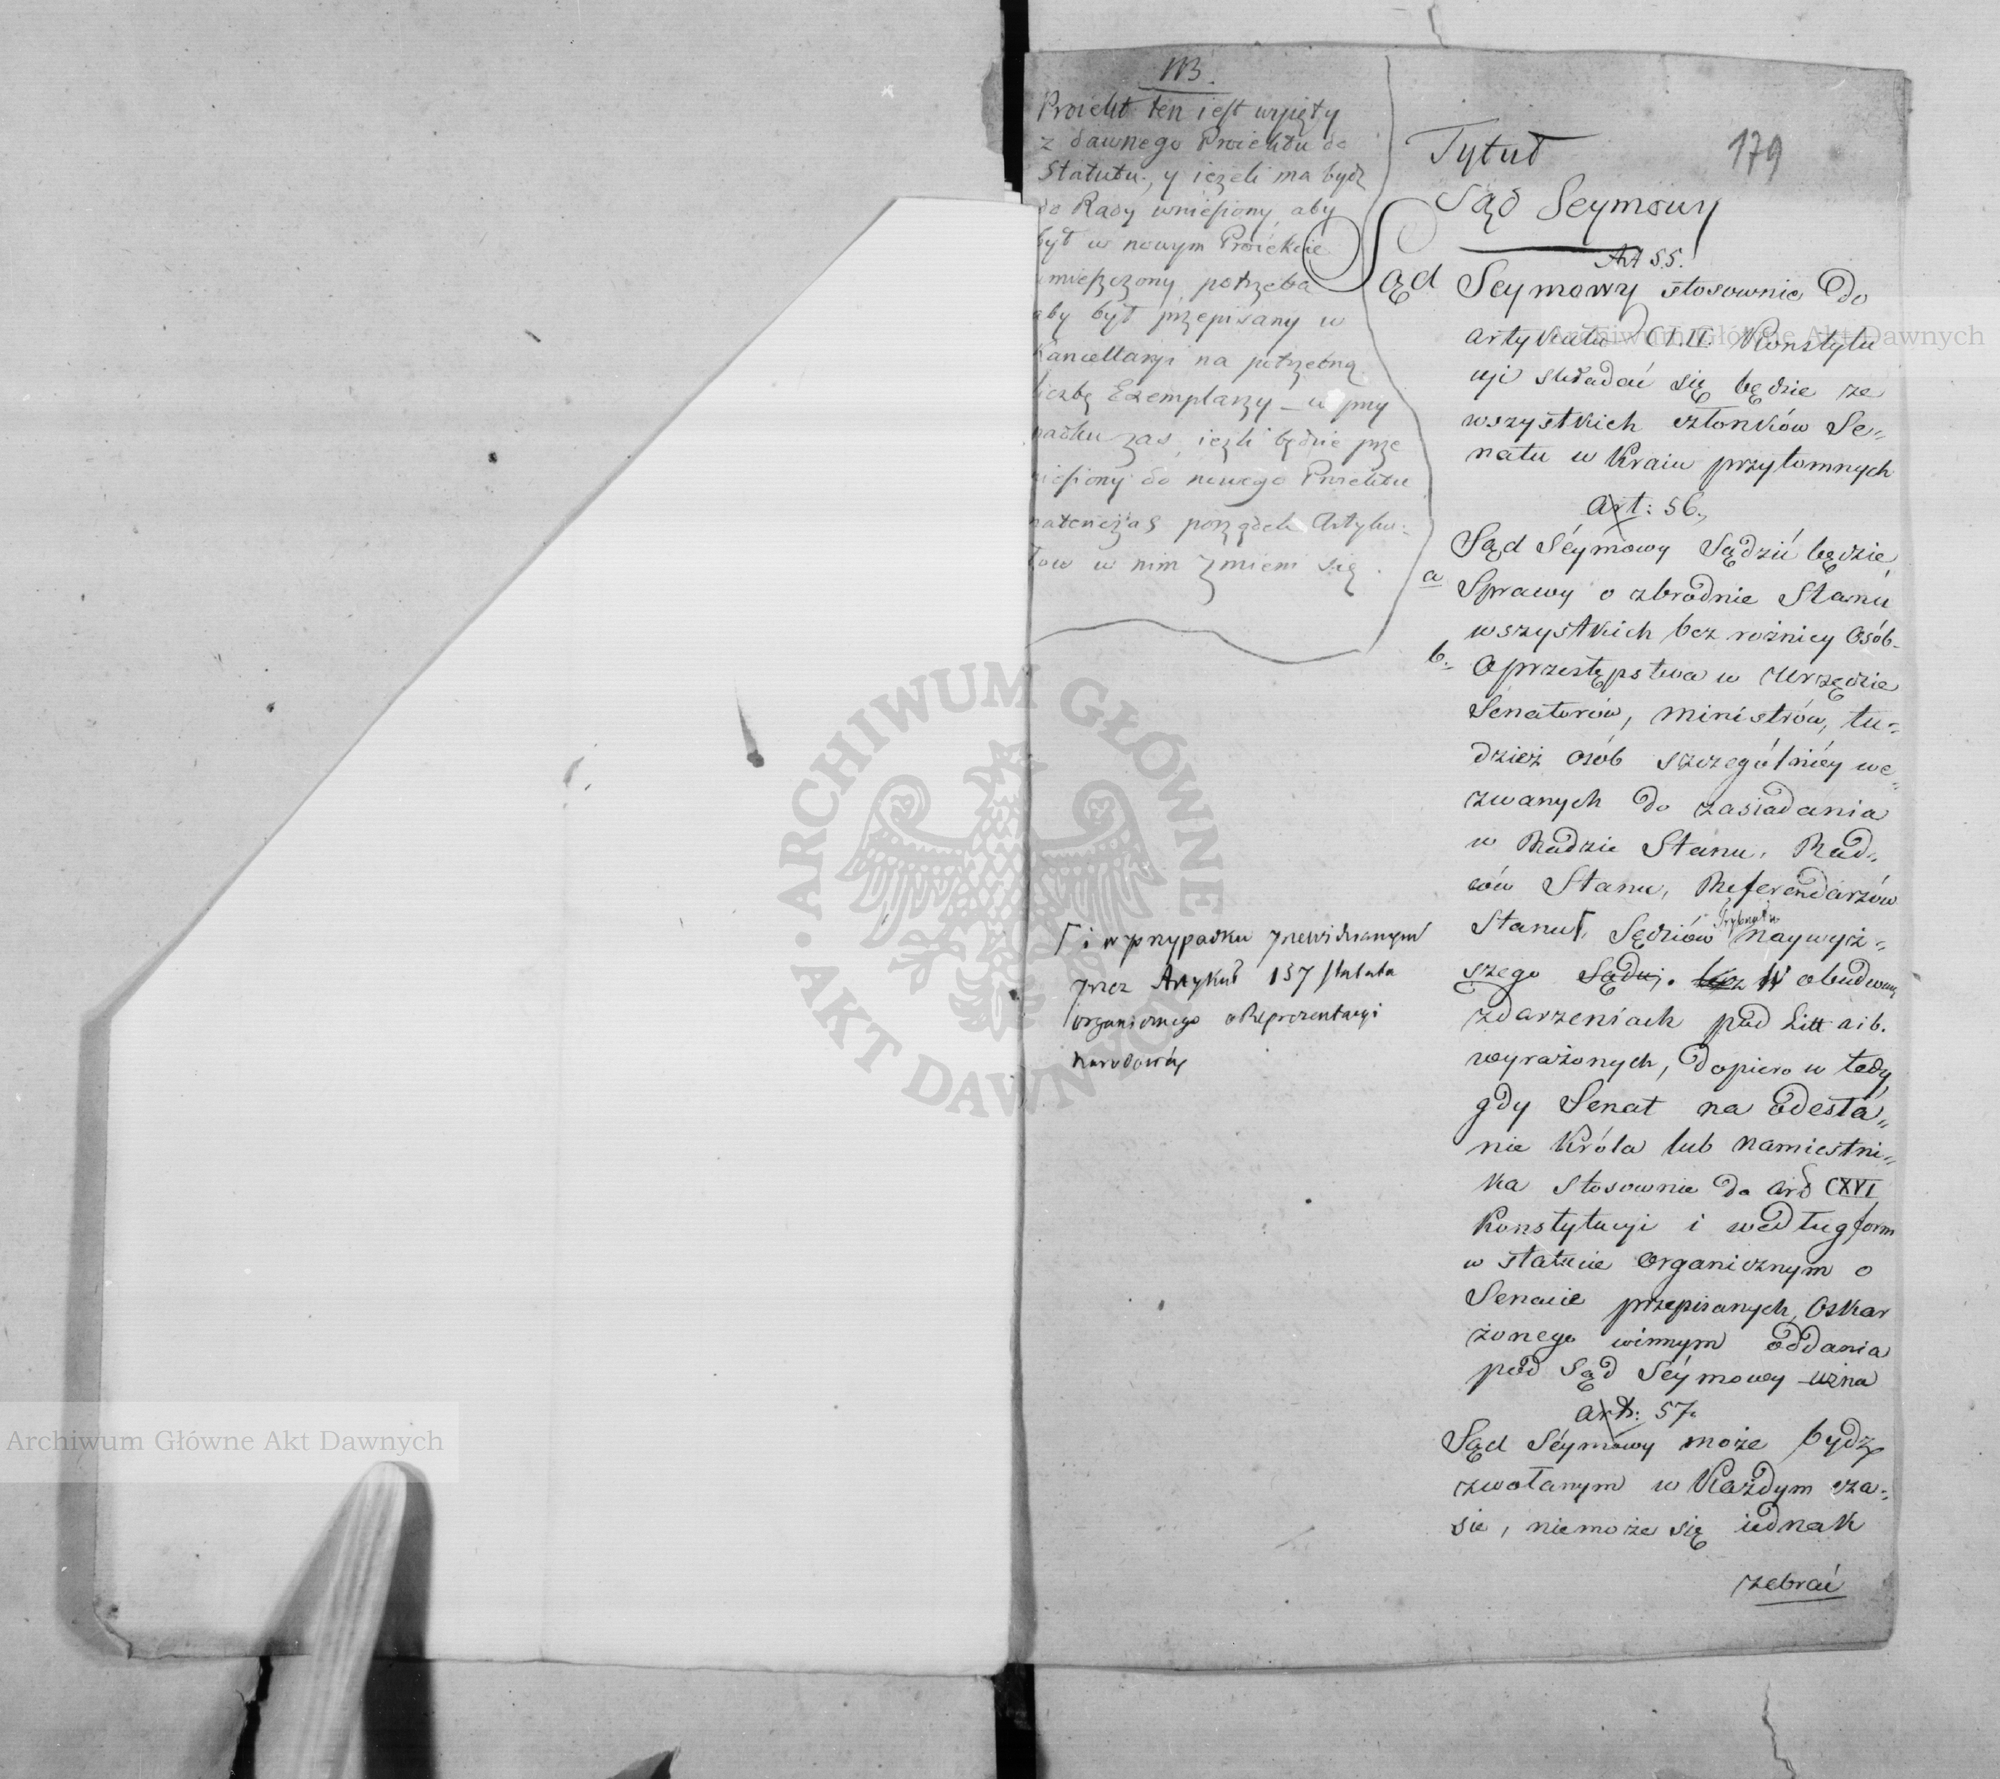 NB.
Proiekt ten iest wyięty
z dawnego Proiektu do
Statutu, y ieżeli ma bydź
do Rady wniesiony, aby
był w nowym Proiekcie
umieszczony, potrzeba
aby był przepisany w
Kancellaryi na potrzebną
liczbę Exemplarzy – w przy
padku zas, ieżli będzie prze
niesiony do nowego Proiektu
natenczas porządek Artyku-
łow w nim zmieni się.
179
Tytuł
Sąd Seymowy
Art 55.
Sąd Seymowy stosownie do
artykułu CLII. Konstytu
cyi składać się będzie ze
wszystkich członków Se-
natu w Kraiu przytomnych
Art: 56.
Sąd Séymowy Sądzić będzie
a Sprawy o zbrodnie Stanu
wszystkich bez rożnicy Osób.
b. O przestępstwa w Urzędzie
Senatorów, ministrów, tu-
dzież osób szczególniéy we-
zwanych do zasiadania
w Radzie Stanu, Rad-
ców Stanu, Referendarzów
Stanu, Sędziów Trybunału Naywyż-
szego Sądu. W obudwuch
zdarzeniach pod Litt a i b.
wyrażonych, dopiero w tedy
gdy Senat na odesła-
nie Króla lub Namiestni-
ka stosownie do Art CXVI
Konstytucyi i według form
w statucie organicznym o
Senacie przepisanych, Oskar
żonego winnym oddania
pod Sąd Séymowy uzna
Art: 57.
Sąd Séymowy może bydź
zwołanym w Każdym cza-
sie, niemoże się iednak
zebrać
i w przypadku przewidzianym
przez Artykuł 137 statutu
organicznego o Reprezentacyi
Narodowéy
Archiwum Główne Akt Dawnych
Archiwum Główne Akt Dawnych
ARCHIWUM GŁÓWNE AKT DAWNYCH